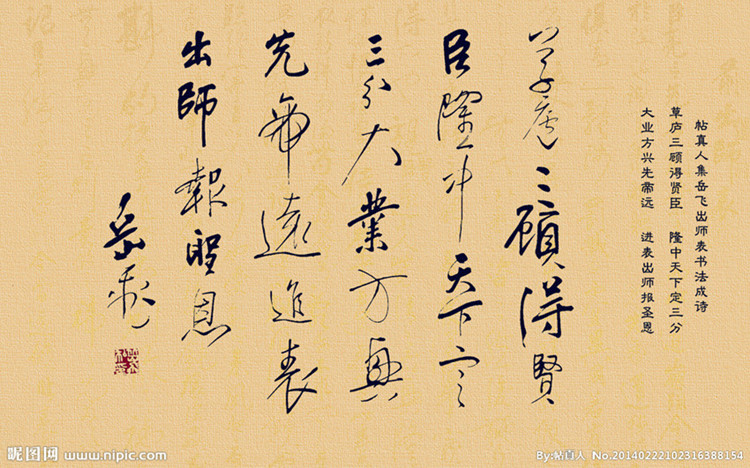 帖真人集岳飞出师表书法成诗
草庐三顾得贤臣 隆中天下定三分
大业方兴先帝远 进表出师报圣恩
草廬三顧得賢
臣隆中天下定
三分大業方興
先帝遠進表
出師報聖恩
岳飛
昵图网 www.nipic.com
By:帖真人 No.20140222102316388154